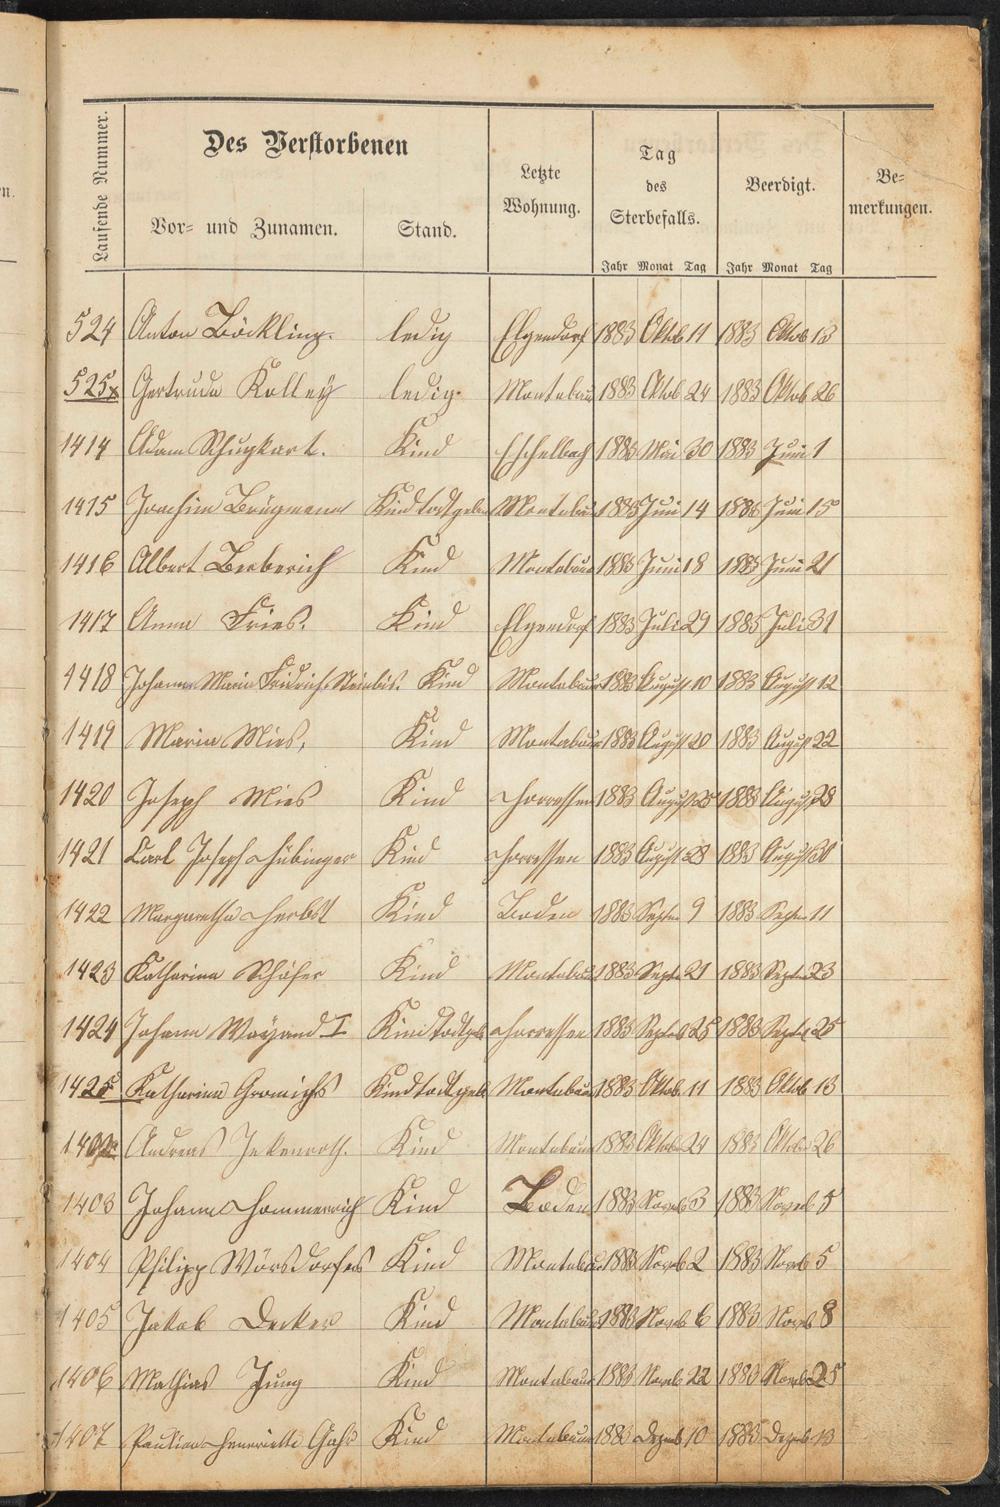 Laufende Nummer.
Des Verstorbenen
Vor- und Zunamen.
Stand.
Letzte
Wohnung.
Tag
des
Sterbefalls.
Beerdigt.
Be-
merkungen.
Jahr Monat Tag Jahr Monat Tag
524 Anton Böckling. ledig Elgendorf 1883 Oktob 11 1883 Oktob 13
525 Gertruda Kolley ledig. Montabaur 1883 Oktob 24 1883 Oktob 26
1414 Adam Kind Eschelbach 1883 Mai 30 1883 Juni 1
1415 Joachim Brügmann Kind todtgeb Montabaur 1883 Juni 14 1883 Juni 15
1416 Albert Berberich Kind Montabaur 1883 Juni 18 1883 Juni 21
1417 Anna Fries. Kind Elgendorf 1883 Juli 29 1883 Juli 31
1418 Johann Maria Fridrich Kind Montabaur 1883 August 10 1883 August 12
1419 Maria Mies, Kind Montabaur 1883 August 20 1883 August 22
1420 Joseph Mies Kind Horressen 1883 August 1883 August 28
1421 Carl Joseph Hübinger Kind Horressen 1883 August 28 1883 August 30
1422 Margaretha Herbst Kind Boden 1883 Septem 9 1883 Septem 11
1423 Katharina Schäfer Kind Montabaur 1883 Septe 21 1883 Septem 23
1424 Johann Wayand I Kind todtgeb Horressen 1883 Septeb 25 1883 Septeb 25
1425 Katharina Kind todtgeb Montabaur 1883 Oktob. 11 1883 Oktob 13
Andreas Kind Montabaur 1883 Oktober 24 1883 Oktober 26
1403 Johann Hommerrich Kind Boden 1883 Novb 3 1883 Novemb 5
1404 Philipp Wörsdorfer Kind Montabaur 1883 Novb 2 1883 Novb 5
1405 Jakob Decker Kind Montabaur 1883 Novb 6 1883 Novb 8
1406 Mathias Jung Kind Montabaur 1883 Novb 22 1883 Novb 25
1407 Henriette Kind Montabaur 1883 Dezmb 10 1883 Dezmb 13